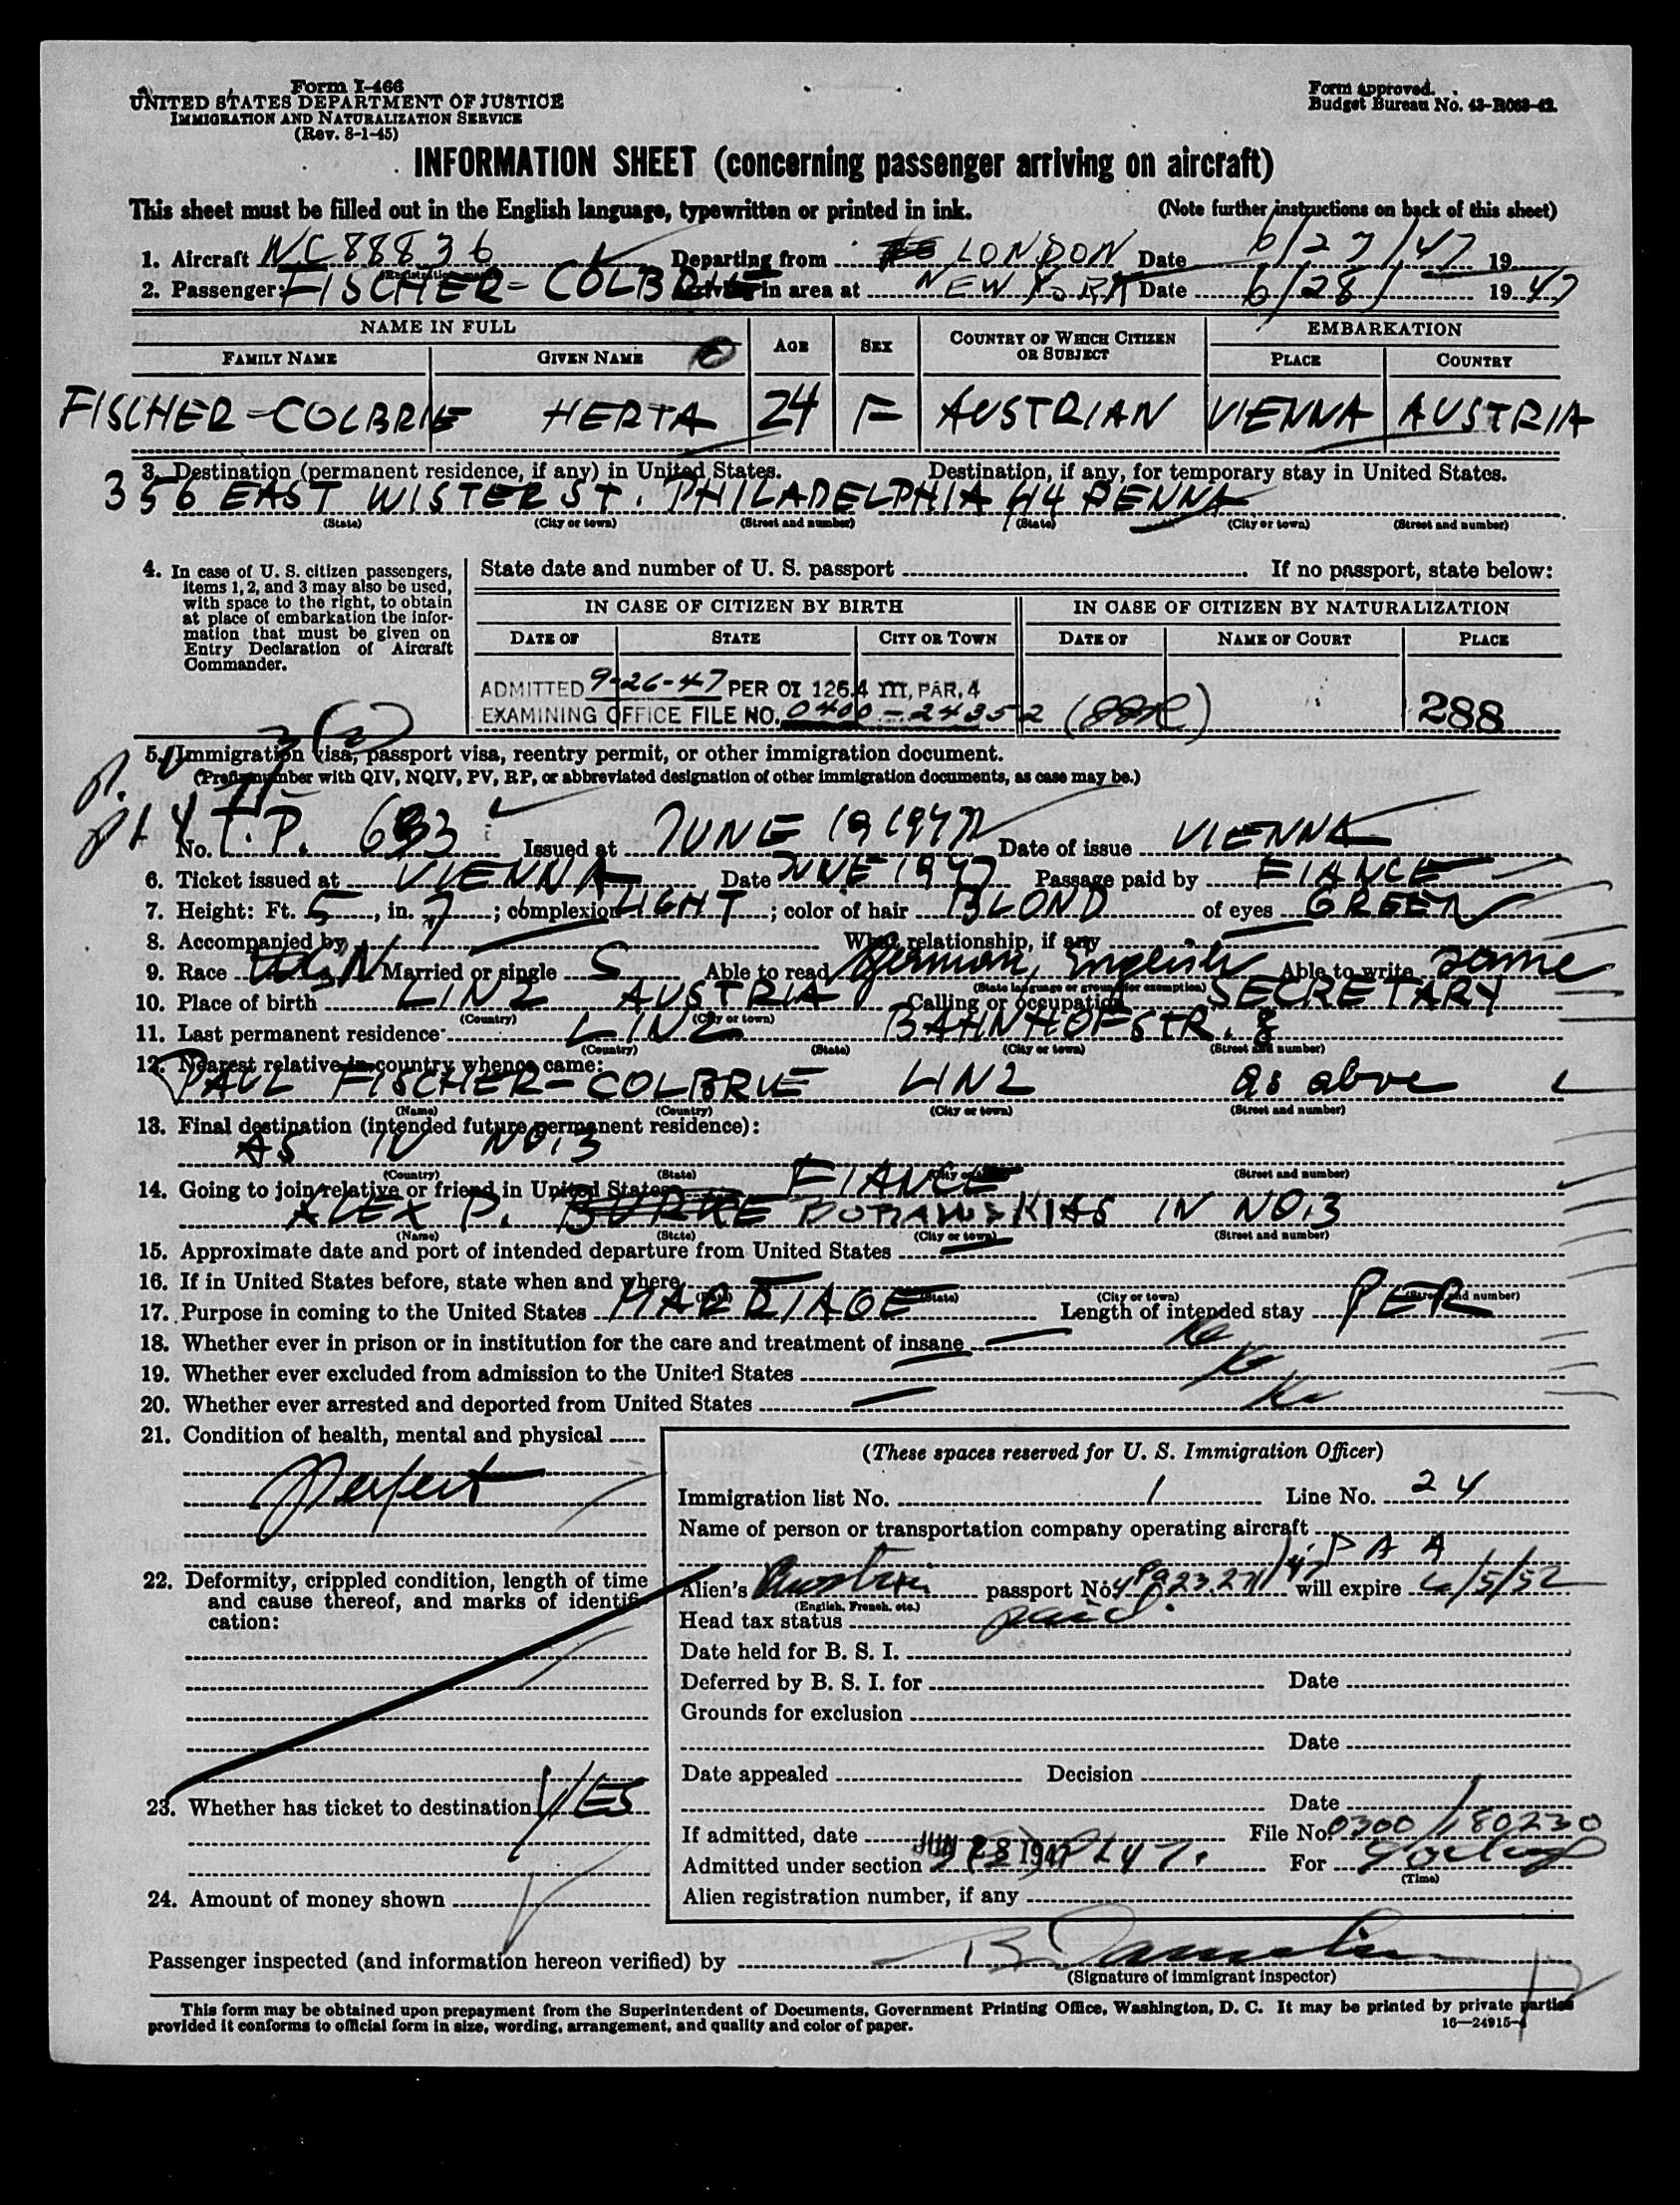 Form I-466
UNITED STATES DEPARTMENT OF JUSTICE
IMMIGRATION AND NATURALIZATION SERVICE
(Rev. 8-1-45)
Form approved.
Budget Bureau No. 43-R063-42.
INFORMATION SHEET (concerning passenger arriving on aircraft)
This sheet must be filled out in the English language, typewritten or printed in ink. (Note further instructions on back of this sheet)
1. Aircraft NC 88836 Departing from LONDON Date 6/27/47 19
2. Passenger: FISCHER-COLBRIE in area at NEW YORK Date 6/28/ 19 47
NAME IN FULL AGE SEX COUNTRY OF WHICH CITIZEN OR SUBJECT EMBARKATION
FAMILY NAME GIVEN NAME PLACE COUNTRY
FISCHER-COLBRIE HERTA 24 F AUSTRIAN VIENNA AUSTRIA
3. Destination (permanent residence, if any) in United States. Destination, if any, for temporary stay in United States.
356 EAST WISTER ST. PHILADELPHIA 44 PENNA
(State) (City or town) (Street and number) (State) (City or town) (Street and number)
4. In case of U. S. citizen passengers, items 1, 2, and 3 may also be used, with space to the right, to obtain at place of embarkation the information that must be given on Entry Declaration of Aircraft Commander.
State date and number of U. S. passport If no passport, state below:
IN CASE OF CITIZEN BY BIRTH IN CASE OF CITIZEN BY NATURALIZATION
DATE OF STATE CITY OR TOWN DATE OF NAME OF COURT PLACE
ADMITTED 9-26-47 PER OI 126.4 III, PAR. 4
EXAMINING OFFICE FILE NO. 0400-24352 288
5. Immigration visa, passport visa, reentry permit, or other immigration document.
(Prefix number with QIV, NQIV, PV, RP, or abbreviated designation of other immigration documents, as case may be.)
No. T.P. 633 Issued at JUNE 19 1947 Date of issue VIENNA
6. Ticket issued at VIENNA Date JUNE 1947 Passage paid by FIANCE
7. Height: Ft. 5, in. 7; complexion LIGHT; color of hair BLOND of eyes GREEN
8. Accompanied by What relationship, if any
9. Race Married or single S Able to read German, English Able to write same
(State language or ground for exemption)
10. Place of birth LINZ AUSTRIA Calling or occupation SECRETARY
(Country) (City or town)
11. Last permanent residence LINZ BAHNHOFSTR. 8
(Country) (State) (City or town) (Street and number)
12. Nearest relative in country whence came:
PAUL FISCHER-COLBRIE LINZ as above
(Name) (Country) (City or town) (Street and number)
13. Final destination (intended future permanent residence):
AS IN NO. 3
(Country) (State) (City or town) (Street and number)
14. Going to join relative or friend in United States FIANCE
ALEX P. BURKE AS IN NO. 3
(Name) (State) (City or town) (Street and number)
15. Approximate date and port of intended departure from United States
16. If in United States before, state when and where
(State) (City or town) (Street and number)
17. Purpose in coming to the United States MARRIAGE Length of intended stay PER
18. Whether ever in prison or in institution for the care and treatment of insane No
19. Whether ever excluded from admission to the United States No
20. Whether ever arrested and deported from United States No
21. Condition of health, mental and physical
Perfect
22. Deformity, crippled condition, length of time and cause thereof, and marks of identification:
23. Whether has ticket to destination YES
24. Amount of money shown
(These spaces reserved for U. S. Immigration Officer)
Immigration list No. 1 Line No. 24
Name of person or transportation company operating aircraft
PAA
Alien's Austrian passport No. will expire 6/5/52
(English, French, etc.)
Head tax status paid.
Date held for B. S. I.
Deferred by B. S. I. for Date
Grounds for exclusion
Date
Date appealed Decision
Date
If admitted, date JUN 28 1947 File No. 0300/180230
Admitted under section For
(Time)
Alien registration number, if any
Passenger inspected (and information hereon verified) by
(Signature of immigrant inspector)
This form may be obtained upon prepayment from the Superintendent of Documents, Government Printing Office, Washington, D. C. It may be printed by private parties
provided it conforms to official form in size, wording, arrangement, and quality and color of paper. 16—24915-4